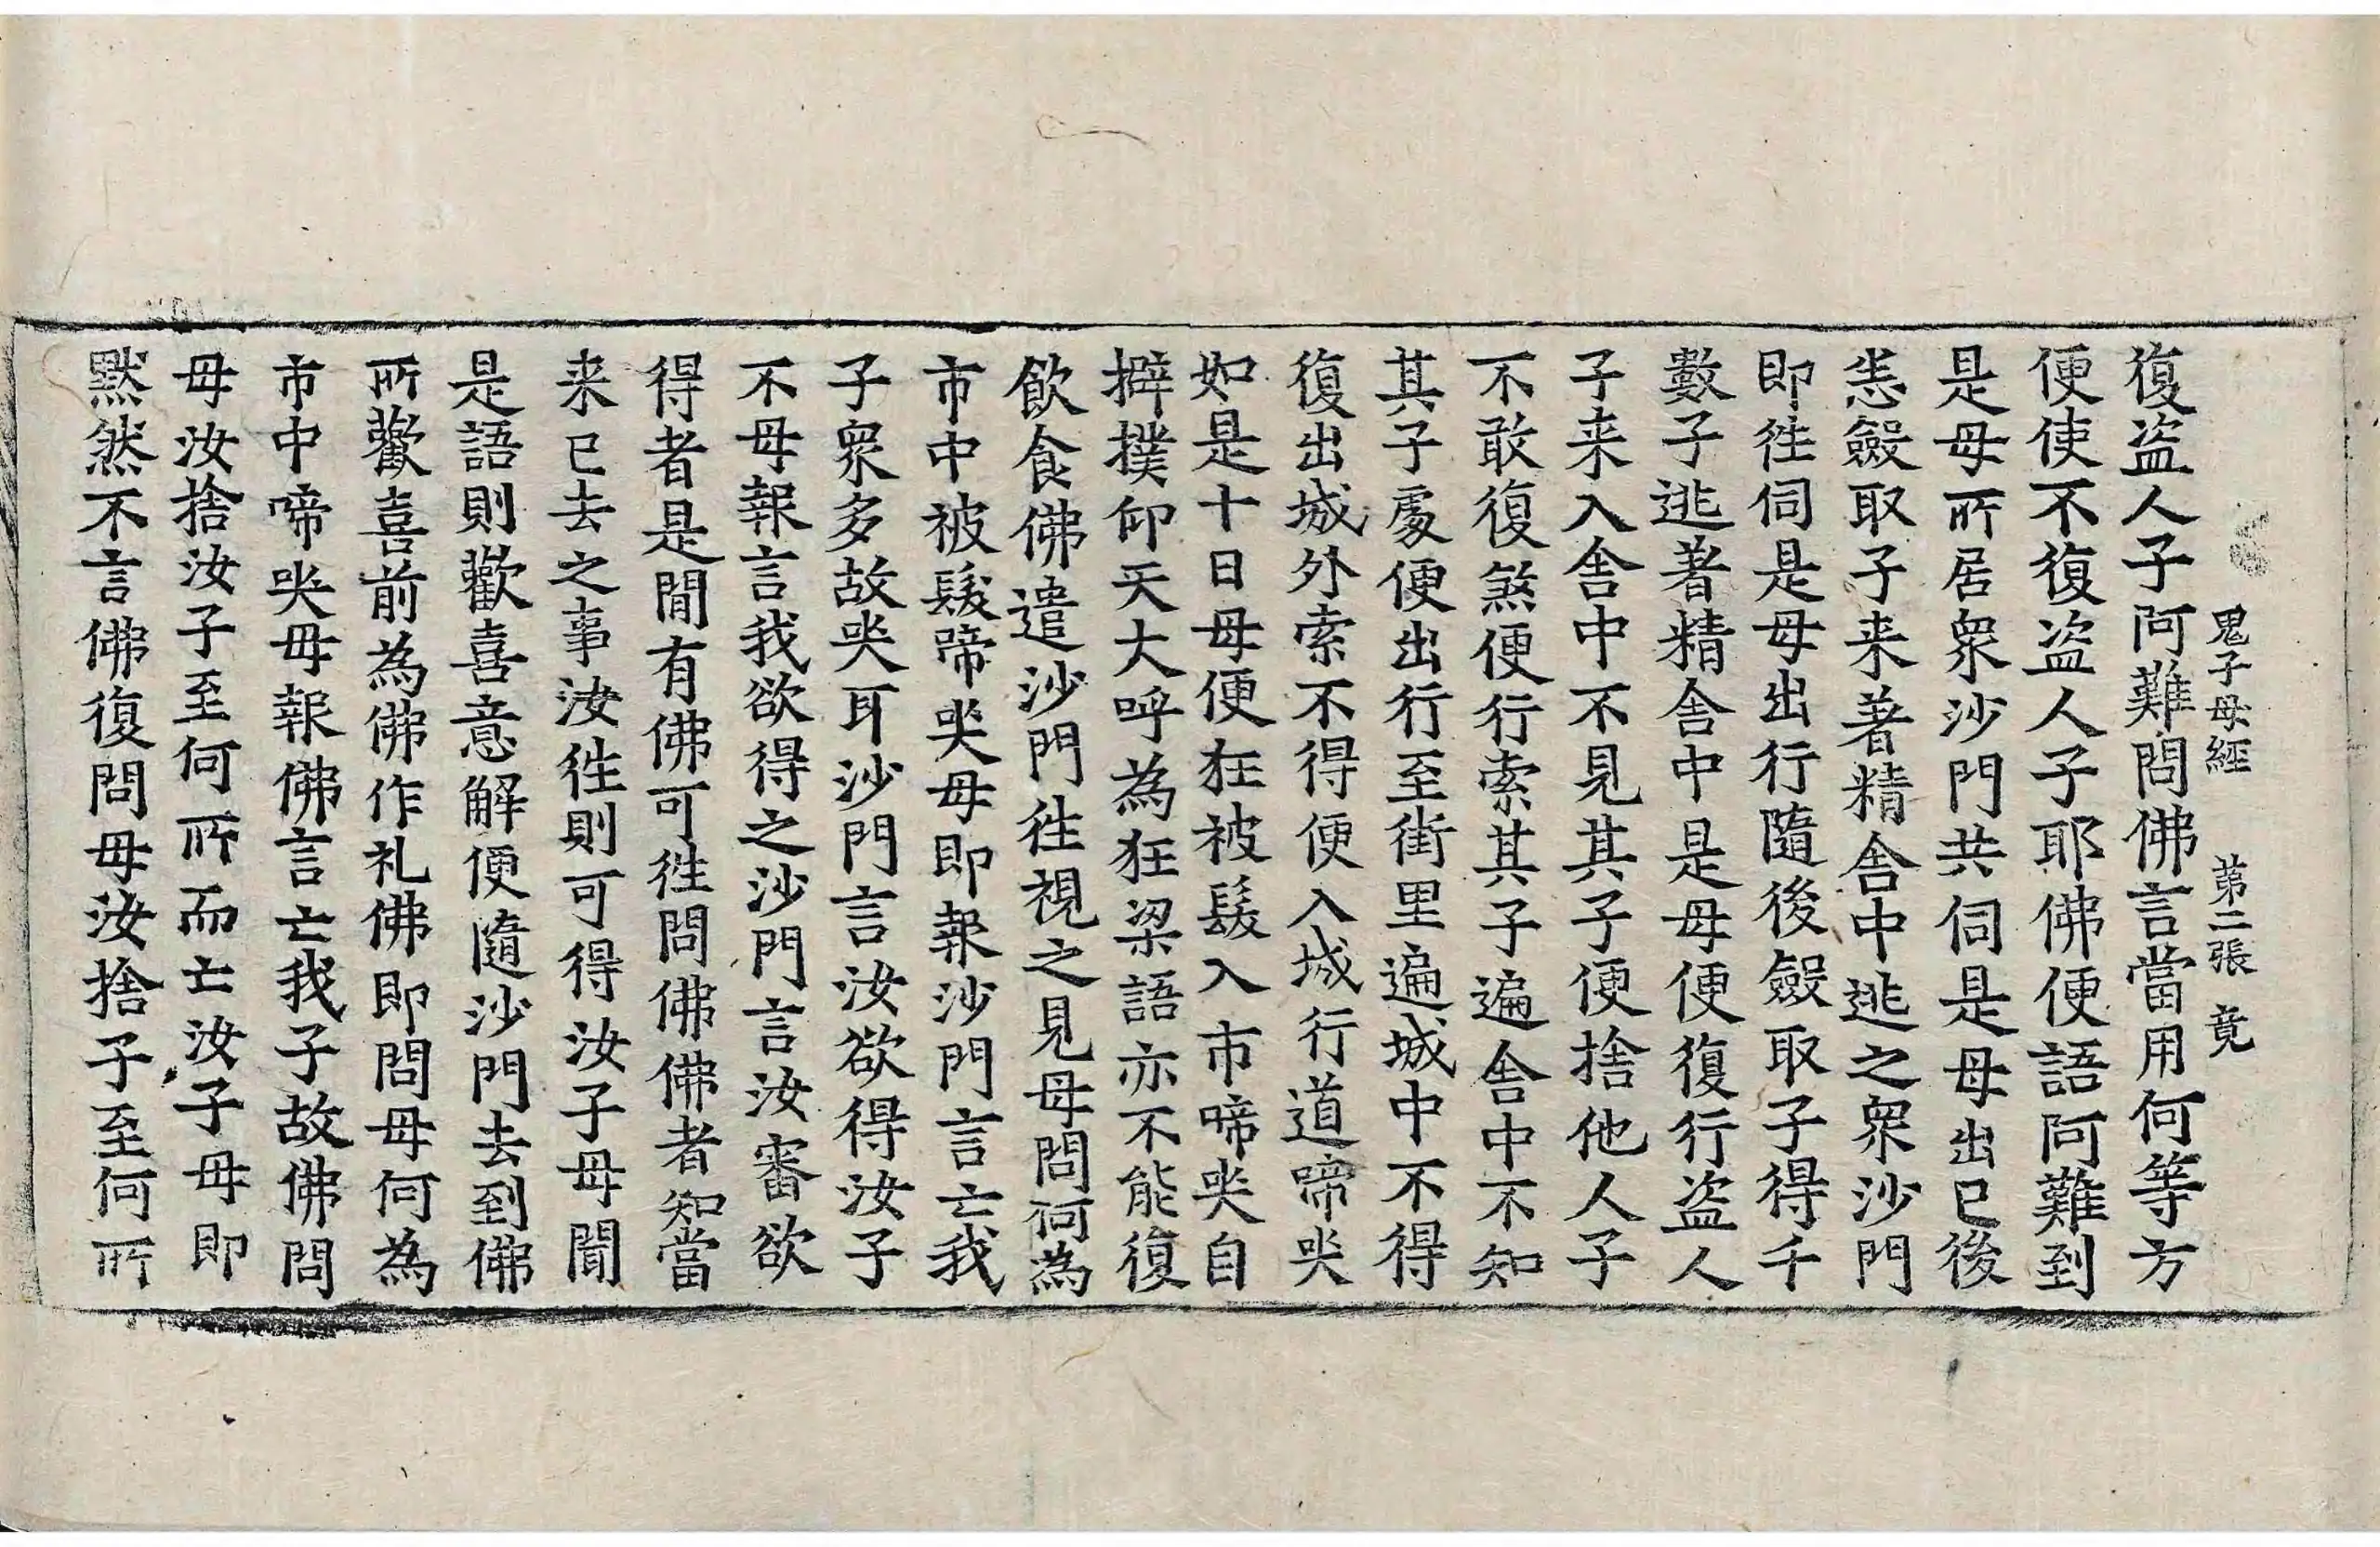 鬼子母經 第二張 竟
復盗人子阿難問佛言當用何等方
便使不復盗人子耶佛便語阿難到
是母所居衆沙門共伺是母出已後
恙斂取子来著精舍中逃之衆沙門
即徃伺是母出行隨後斂取子得千
數子逃著精舍中是母便復行盗人
子来入舍中不見其子便捨他人子
不敢復煞便行索其子遍舍中不知
其子處便出行至街里遍城中不得
復出城外索不得便入城行道啼哭
如是十日母便狂被髮入市啼哭自
擗撲仰天大呼為狂梁語亦不能復
飲食佛遣沙門徃視之見母問何為
市中被髮啼哭母即報沙門言亡我
子衆多故哭耳沙門言汝欲得汝子
不母報言我欲得之沙門言汝審欲
得者是間有佛可徃問佛佛者知當
来已去之事汝徃則可得汝子母聞
是語則歡喜意解便隨沙門去到佛
所歡喜前為佛作礼佛即問母何為
市中啼哭母報佛言亡我子故佛問
母汝捨汝子至何所而亡汝子母即
默然不言佛復問母汝捨子至何所